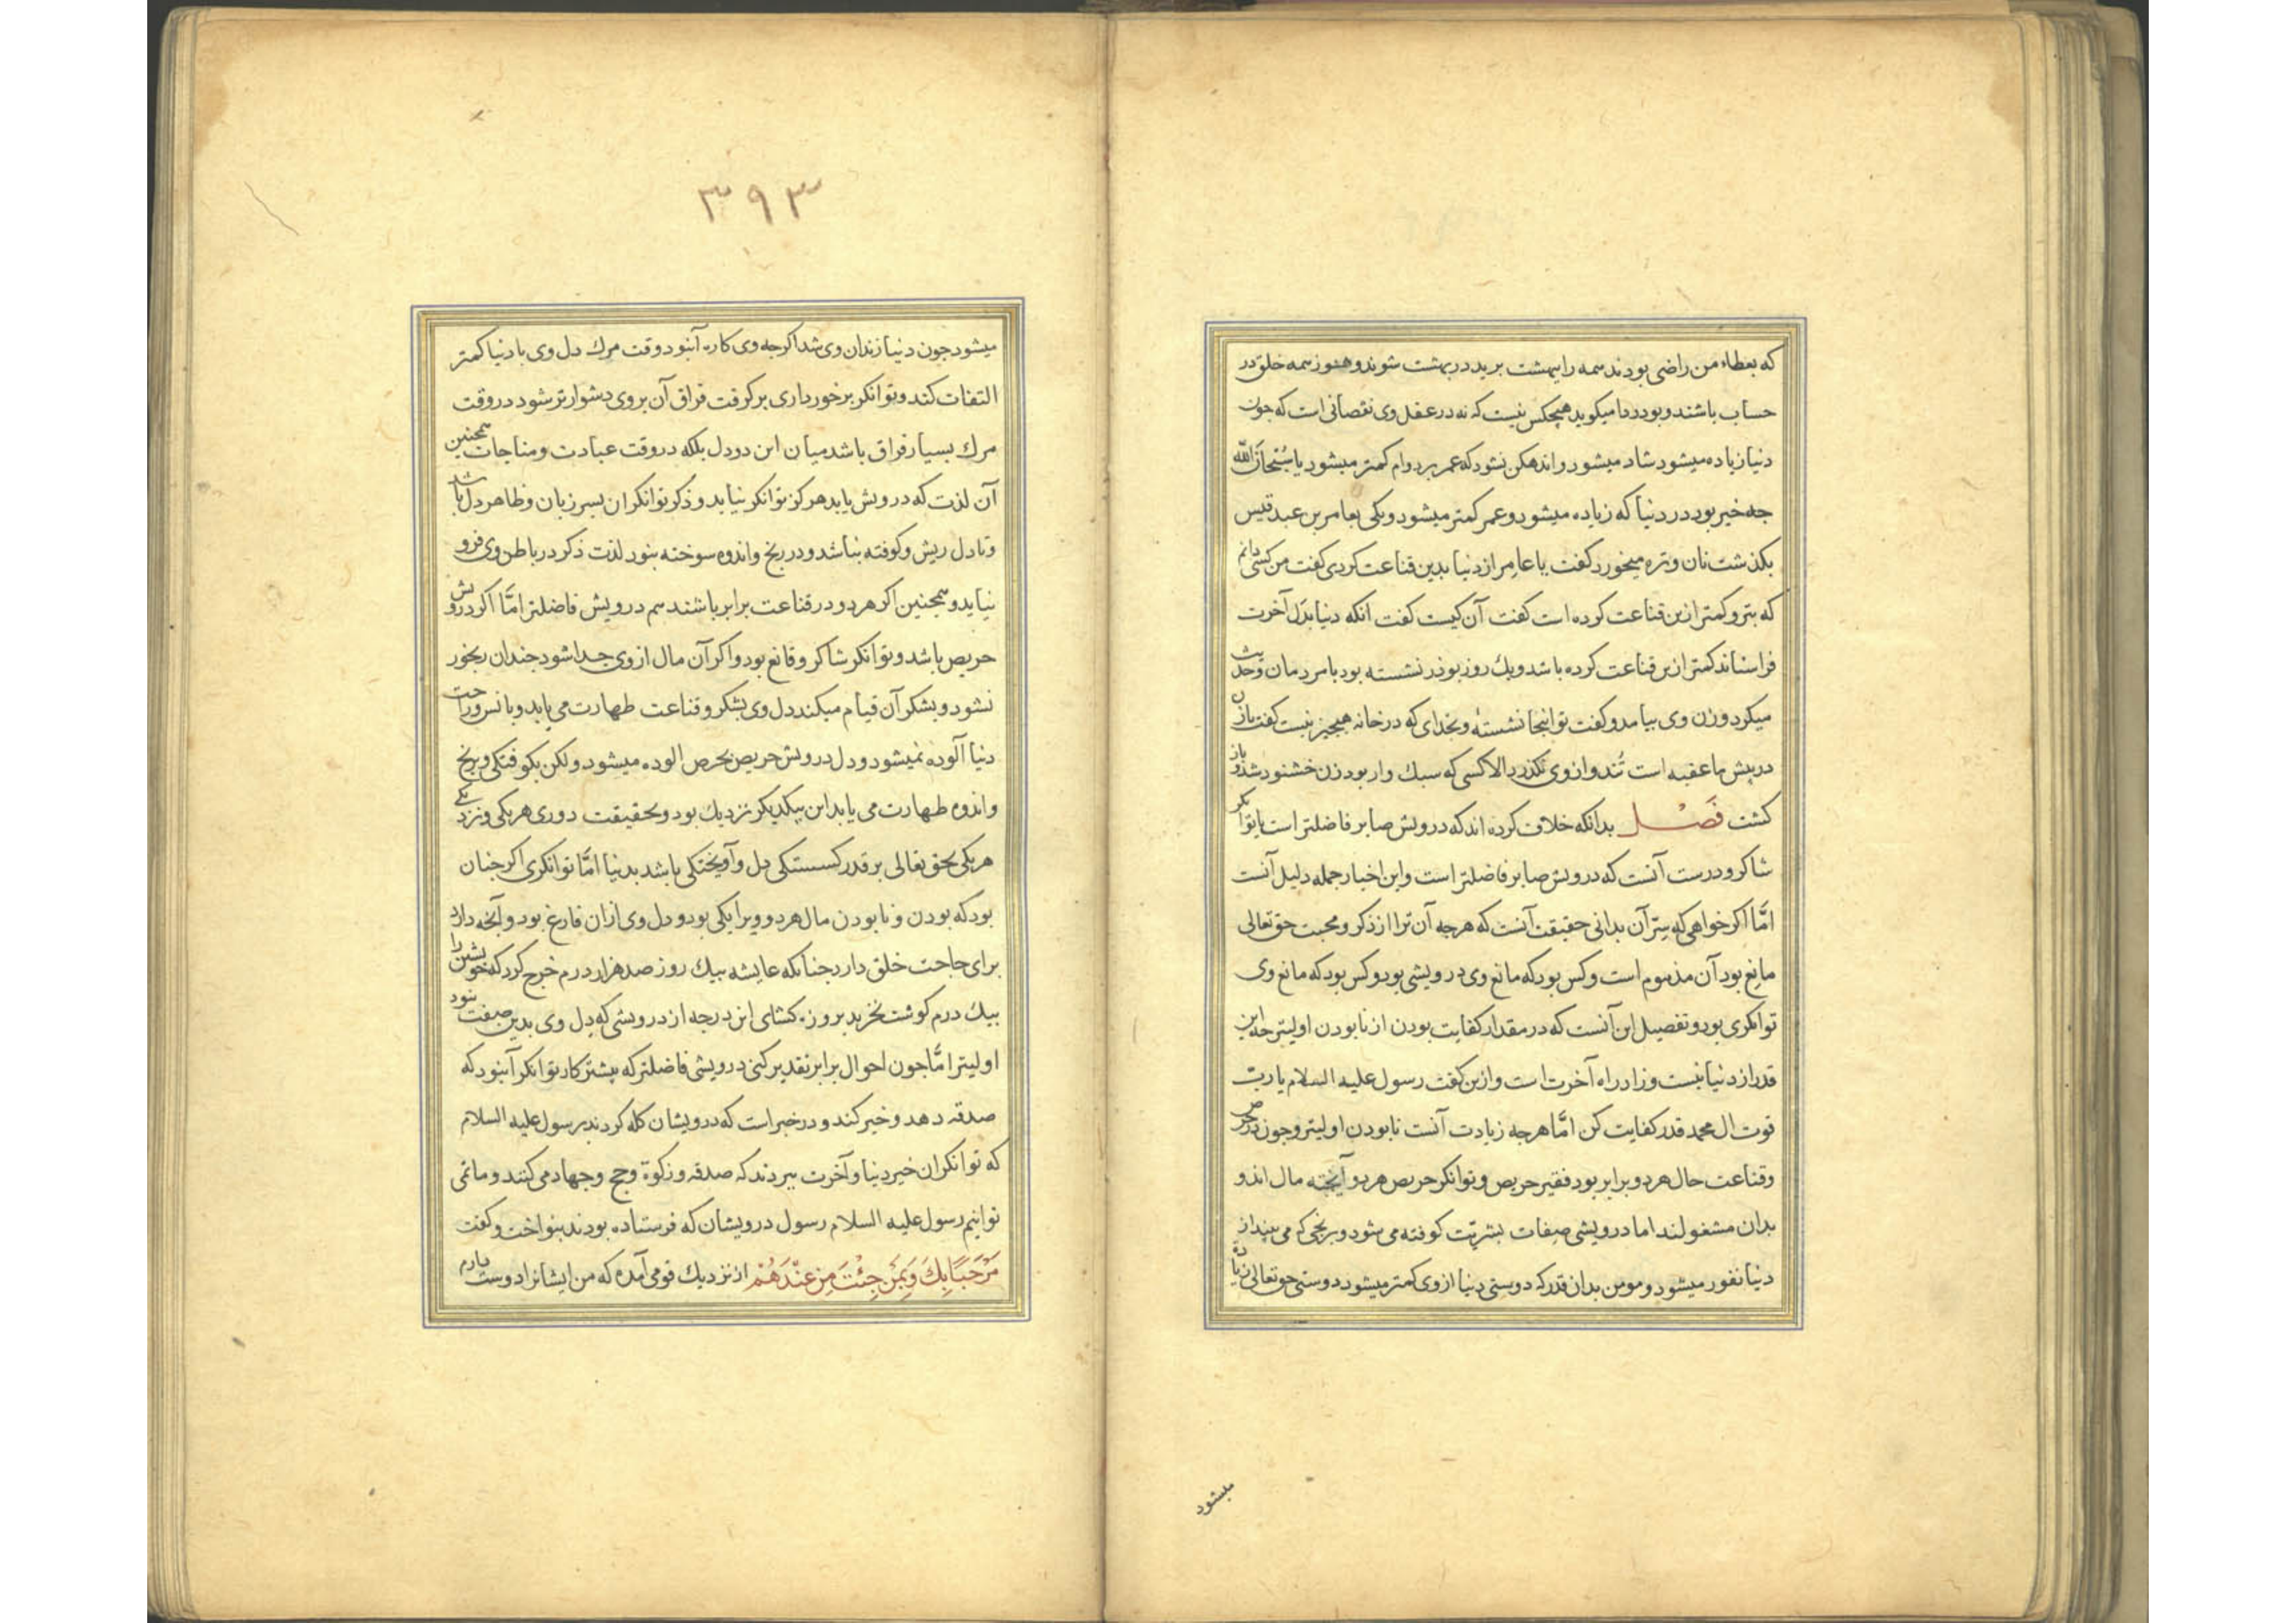 که بعطاء من راضی بودند همه را ببهشت برید در بهشت شوند و هنوز همه خلق در
حساب باشند و بودردا میکوید هیچکس نیست که نه در عقل وی نقصانی است که جون
دنیا زیاده میشود شاد میشود و اندهکن نشود که عمر بر دوام کمتر میشود یا سُبْحَانَ اللّه
جه خیر بود در دنیا که زیاده میشود و عمر کمتر میشود و یکی بعامر بن عبد قیس
بکذشت نان و تره میخورد کفت یا عامر از دنیا بدین قناعت کردی کفت من کسی دانم
که بتر و کمتر ازین قناعت کرده است کفت آن کیست کفت انکه دنیا بدل آخرت
فراستاند کمتر ازین قناعت کرده باشد و یک روز بوذر نشسته بود با مردمان و حدیث
میکرد و زن وی بیامد و کفت تو اینجا نشستهٔ و بخدای که در خانه هیجیز نیست کفت یا زن
در پیش ما عقبه است تُند و از وی نکذرد الا کسی که سبک وار بود زن خشنود شد و باز
کشت فَصْل بدانکه خلاف کرده اند که درویش صابر فاضلتر است یا توانکر
شاکر و درست آنست که درویش صابر فاضلتر است و این اخبار جمله دلیل آنست
امّا اکر خواهی که سِرّ آن بدانی حقیقت آنست که هرجه آن ترا از ذکر و محبت حق تعالی
مانِع بود آن مذموم است و کس بود که مانع وی درویشی بود و کس بود که مانع وی
توانکری بود و تفصیل این آنست که در مقدار کفایت بودن از نابودن اولیتر جه این
قدر از دنیا نیست و زاد راه آخرت است و ازین کفت رسول علیه السلام یا ربّ
قوت ال محمد قدر کفایت کن امّا هرجه زیادت آنست نابودن اولیتر و جون در حرص
و قناعت حال هر دو برابر بود فقیر حریص و توانکر حریص هر دو آویخته مال اند و
بدان مشغولند اما درویشی صِفات بشریّت کوفته می شود و برنجی که می بیند از
دنیا نفور میشود و مومن بدان قدر که دوستی دنیا از وی کمتر میشود دوستی حق تعالی زیاده
میشود
۳۹۳
میشود جون دنیا زندان وی شد اکرجه وی کاره آنبود وقت مرک دل وی با دنیا کمتر
التفات کند و توانکر برخورداری برکرفت فراق آن بر وی دشوارتر شود در وقت
مرک بسیار فراق باشد میان این دو دل بلکه در وقت عبادت و مناجات همجنین
آن لذت که درویش یابد هرکز توانکر نیابد و ذکر توانکران بسر زبان و ظاهر دل باشد
و تا دل ریش و کوفته نباشد و در رنج و اندوه سوخته نبود لذت ذکر در باطن وی فرو
نیاید و همجنین اکر هر دو در قناعت برابر باشند هم درویش فاضلتر امَّا اکر درویش
حریص باشد و توانکر شاکر و قانع بود و اکر آن مال از وی جدا شود جندان رنجور
نشود و بشکر آن قیام میکند دل وی بشکر و قناعت طهارت می یابد و بانس و راحت
دنیا آلوده نمیشود و دل درویش حریص بحرص الوده میشود ولکن بکوفتکی و رنج
و اندوه طهارت می یابد این بیکدیکر نزدیک بود و بحقیقت دوری هر یکی و نزدیکی
هر یکی بحق تعالی بر قدر کسستکی دل و آویختکی باشد بدنیا امَّا توانکری اکر جنان
بود که بودن و نابودن مال هر دو ویرا یکی بود و دل وی ازان فارغ بود و آنجه دارد
برای حاجت خلق دارد جنانکه عایشه بیک روز صد هزار درم خرج کرد که خویشتن را
بیک درم کوشت نخرید بروزه کشای این درجه از درویشی که دل وی بدین صفت نبود
اولیتر امَّا جون احوال برابر تقدیر کنی درویشی فاضلتر که بیشتر کار توانکر آنبود که
صدقه دهد و خیر کند و در خبر است که درویشان کله کردند بر رسول علیه السلام
که توانکران خیر دنیا و آخرت ببردند که صدقه و زکوة و حج و جهاد می کنند و ما نمی
توانیم رسول علیه السلام رسول درویشان که فرستاده بودند بنواخت و کفت
مَرْحَبًا بِكَ وَبِمَنْ جِئْتَ مِنْ عِنْدَهُمْ از نزدیک قومی آمدهٔ که من ایشانرا دوست دارم